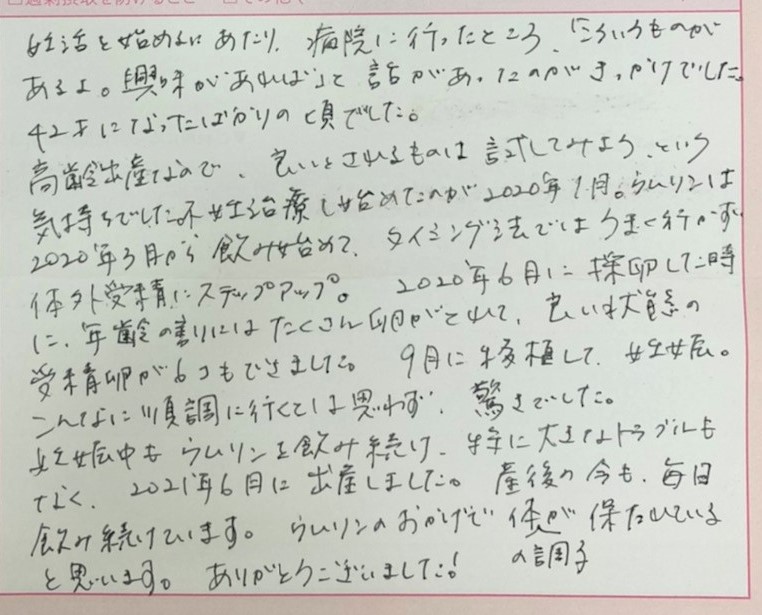 妊活を始めるにあたり、病院に行ったところ、「こういうものが
あるよ。興味があれば」と話があったのがきっかけでした。
42才になったばかりの頃でした。
高齢出産なので、良いとされるものは試してみよう、という
気持ちでした。不妊治療し始めたのが2020年1月。うムリンは
2020年3月から飲み始めて、タイミング法ではうまく行かず、
体外受精にステップアップ。 2020年6月に採卵した時
に、年齢の割りにはたくさん卵がとれて、良い状態の
受精卵が6コもできました。 9月に移植して、妊娠。
こんなに順調に行くとは思わず、驚きでした。
妊娠中もうムリンを飲み続け、特に大きなトラブルも
なく、2021年6月に出産しました。産後の今も、毎日
飲み続けています。うムリンのおかげで体の調子が保たれている
と思います。ありがとうございました!